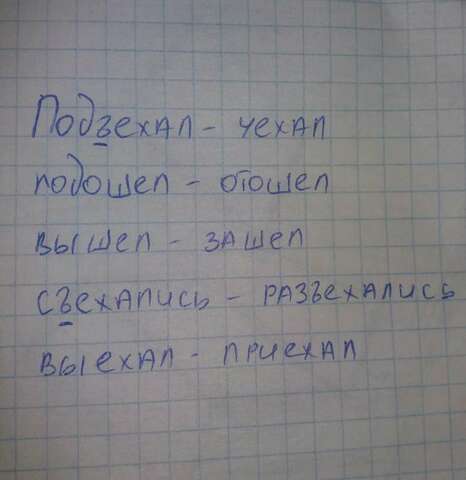 Подъехал - уехал
подошел - отошел
вышел - зашел
съехались - разъехались
выехал - приехал